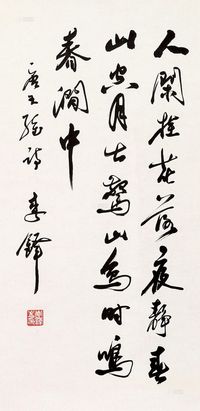 人閑桂花落夜靜春
山空月出驚山鳥時鳴
春澗中
唐王維詩 李鐸